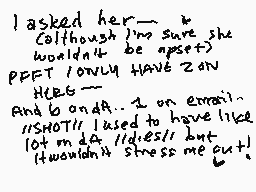 I asked her—
(although I'm sure she
wouldn't be upset)
PFFT I ONLY HAVE 2 ON
HERE —
And 6 on dA.. 1 on email.
//SHOT// I used to have like
lot on dA //dies// but
it wouldn't stress me out!